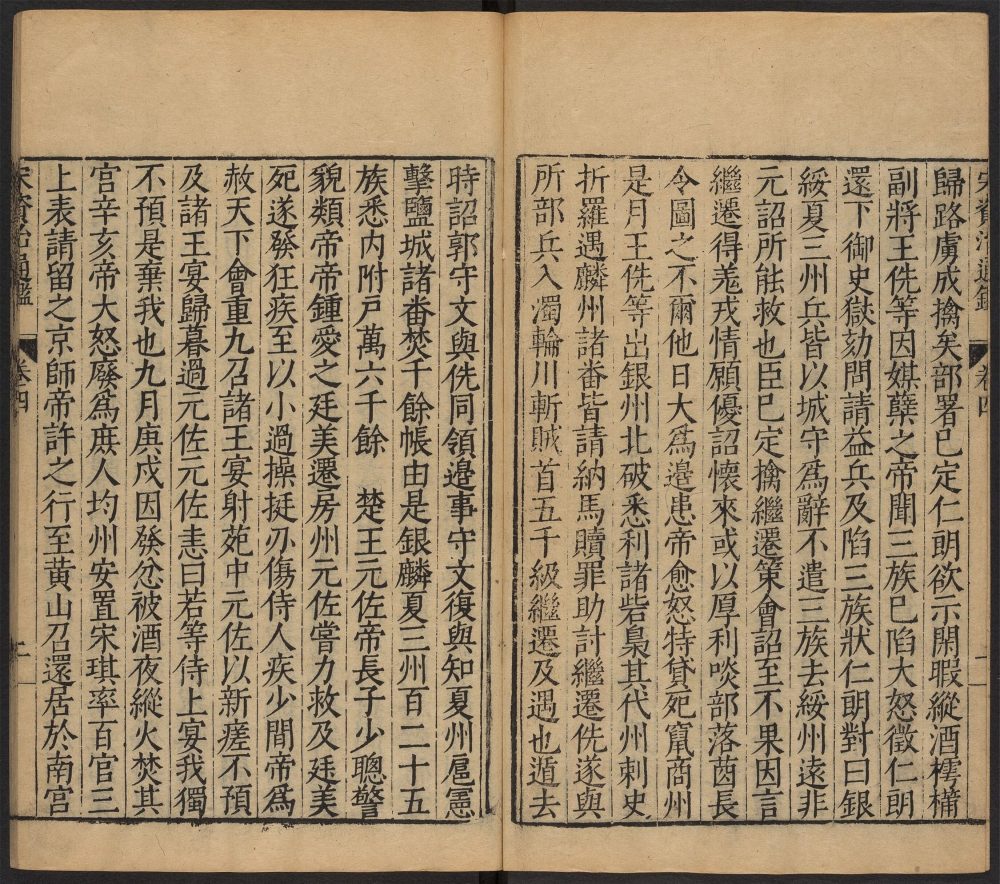 歸路虜成擒矣部署已定仁朗欲示閑暇縱酒樗蒱
副將王侁等因媒孽之帝聞三族已陷大怒徵仁朗
還下御史獄劾問請益兵及陷三族狀仁朗對曰銀
綏夏三州兵皆以城守爲辭不遣三族去綏州遠非
元詔所能救也臣已定擒繼遷策會詔至不果因言
繼遷得羌戎情願優詔懷來或以厚利啖部落酋長
令圖之不爾他日大爲邉患帝愈怒特貸死竄商州
是月王侁等出銀州北破悉利諸砦梟其代州刺史
折羅遇麟州諸畨皆請納馬贖罪助討繼遷侁遂與
所部兵入濁輪川斬賊首五千級繼遷及遇也遁去
時詔郭守文與侁同領邉事守文復與知夏州扈憲
擊鹽城諸畨焚千餘帳由是銀麟夏三州百二十五
族悉内附戸萬六千餘　楚王元佐帝長子少聰警
貌類帝帝鍾愛之廷美遷房州元佐嘗力救及廷美
死遂發狂疾至以小過操挺刃傷侍人疾少間帝爲
赦天下會重九召諸王宴射苑中元佐以新瘥不預
及諸王宴歸暮過元佐元佐恚曰若等侍上宴我獨
不預是棄我也九月庚戌因發忿被酒夜縱火焚其
宮辛亥帝大怒廢爲庶人均州安置宋琪率百官三
上表請留之京師帝許之行至黄山召還居於南宮
宋資治通鑑 卷四